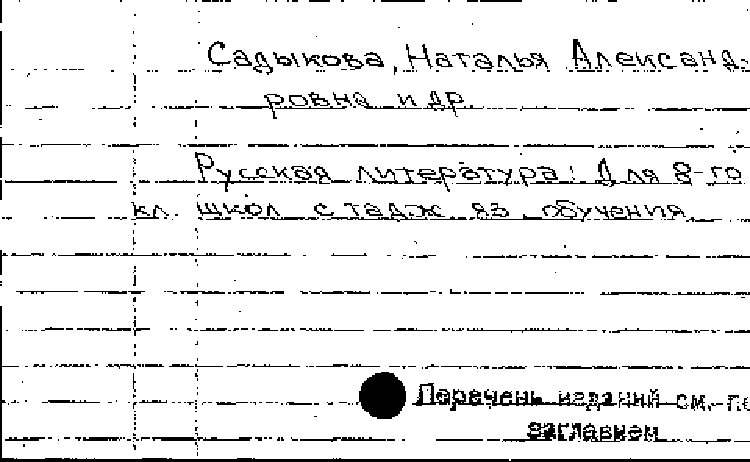 Садыкова, Наталья Александ-
ровна и др.
Русская литература: Для 8-го
кл. школ с тадж. яз. обучения
Перечень изданий см. по
заглавием